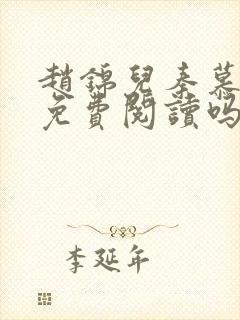 趙錦兒秦慕
免費閱讀嗎
李延年